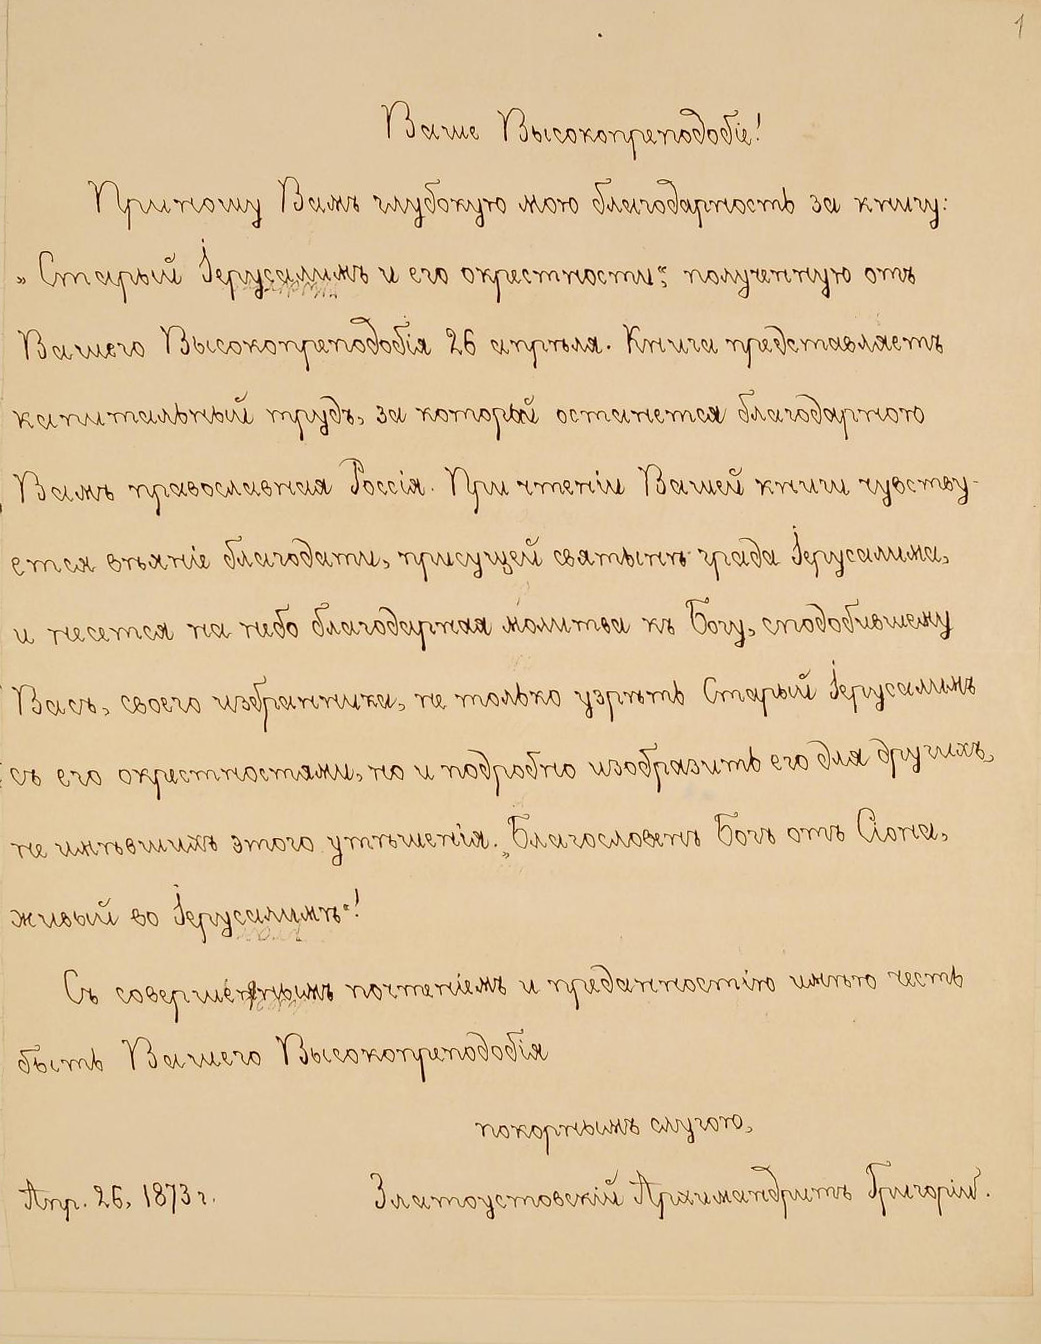 1
Ваше Высокопреподобіе!
Приношу Вамъ глубокую мою благодарность за книгу:
„Старый Іерусалимъ и его окрестности", полученную отъ
Вашего Высокопреподобія 26 апрѣля. Книга представляетъ
капитальный трудъ, за который останется благодарною
Вамъ православная Россія. При чтеніи Вашей книги чувству-
ется вѣяніе благодати, присущей святынѣ града Іерусалима,
и несется на небо благодарная молитва къ Богу, сподобившему
Васъ, своего избранника, не только узрѣть Старый Іерусалимъ
съ его окрестностями, но и подробно изобразить его для другихъ,
не имѣвшихъ этого утѣшенія. „Благословенъ Богъ отъ Сіона,
живый во Іерусалимѣ"!
Съ совершеннымъ почтеніемъ и преданностію имѣю честь
быть Вашего Высокопреподобія
покорнымъ слугою,
Апр. 26, 1873 г. Златоустовскій Архимандритъ Григорій.